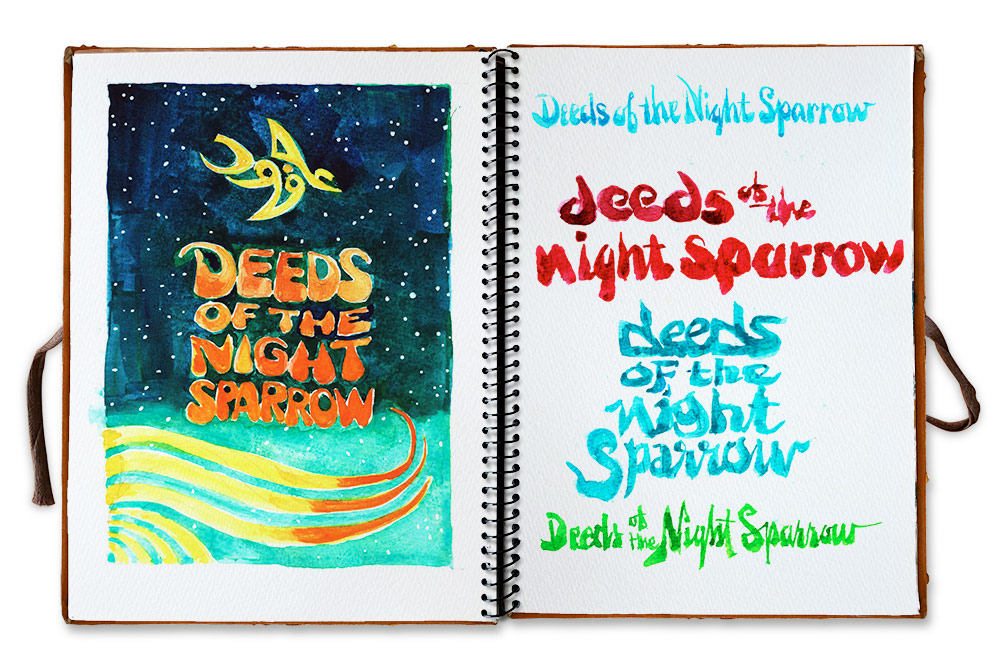 DEEDS
OF THE
NIGHT
SPARROW
Deeds of the Night Sparrow
deeds of the
night sparrow
deeds
of the
night
Sparrow
Deeds of the Night Sparrow